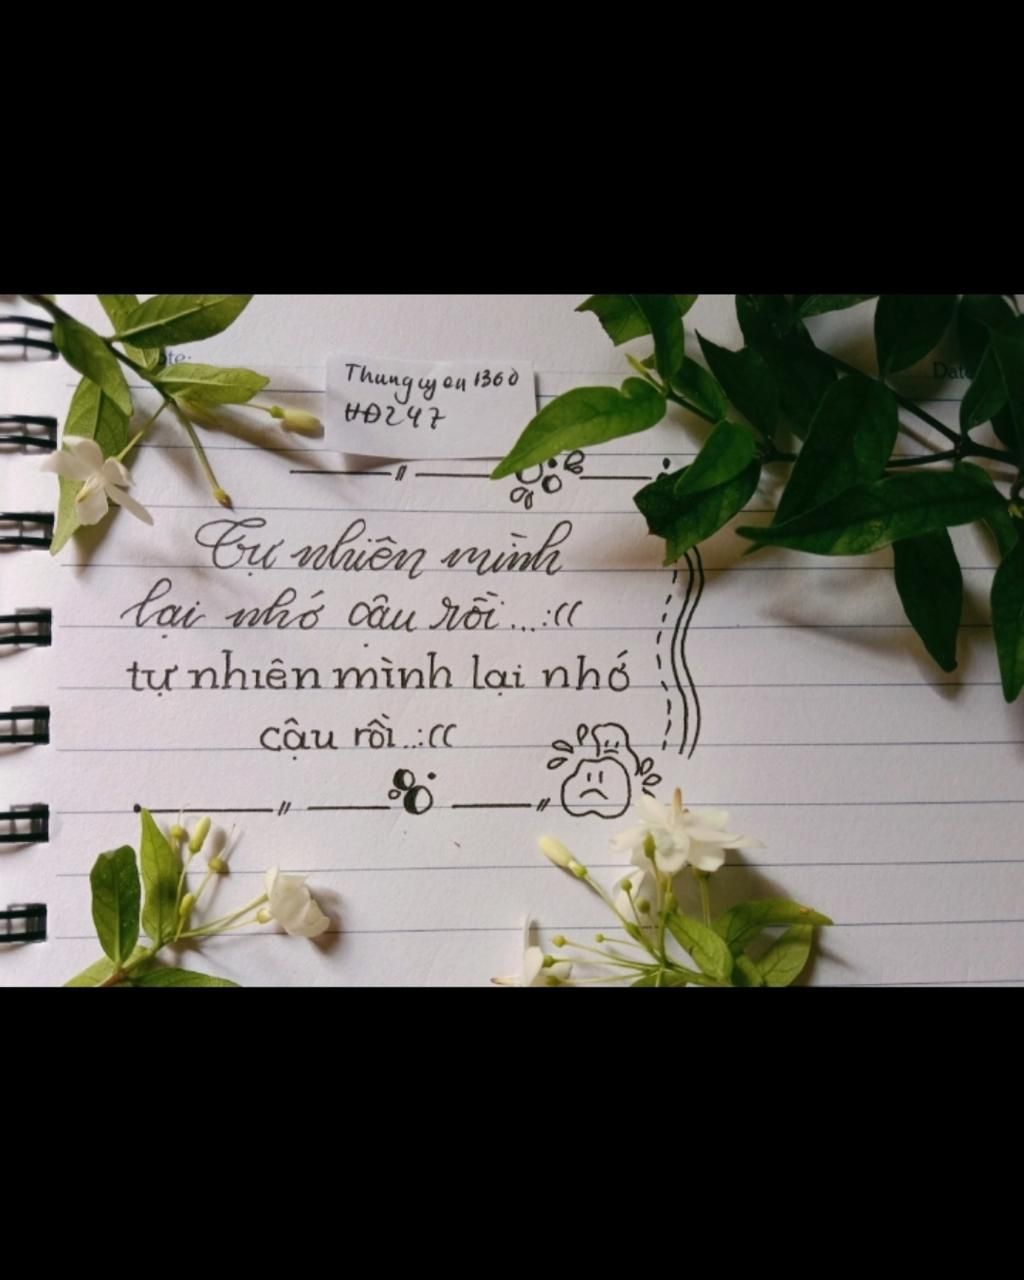 Date:
Thunguyen1360
HĐ247
Date
Tự nhiên mình
lại nhớ cậu rồi...:((
tự nhiên mình lại nhớ
cậu rồi...:((